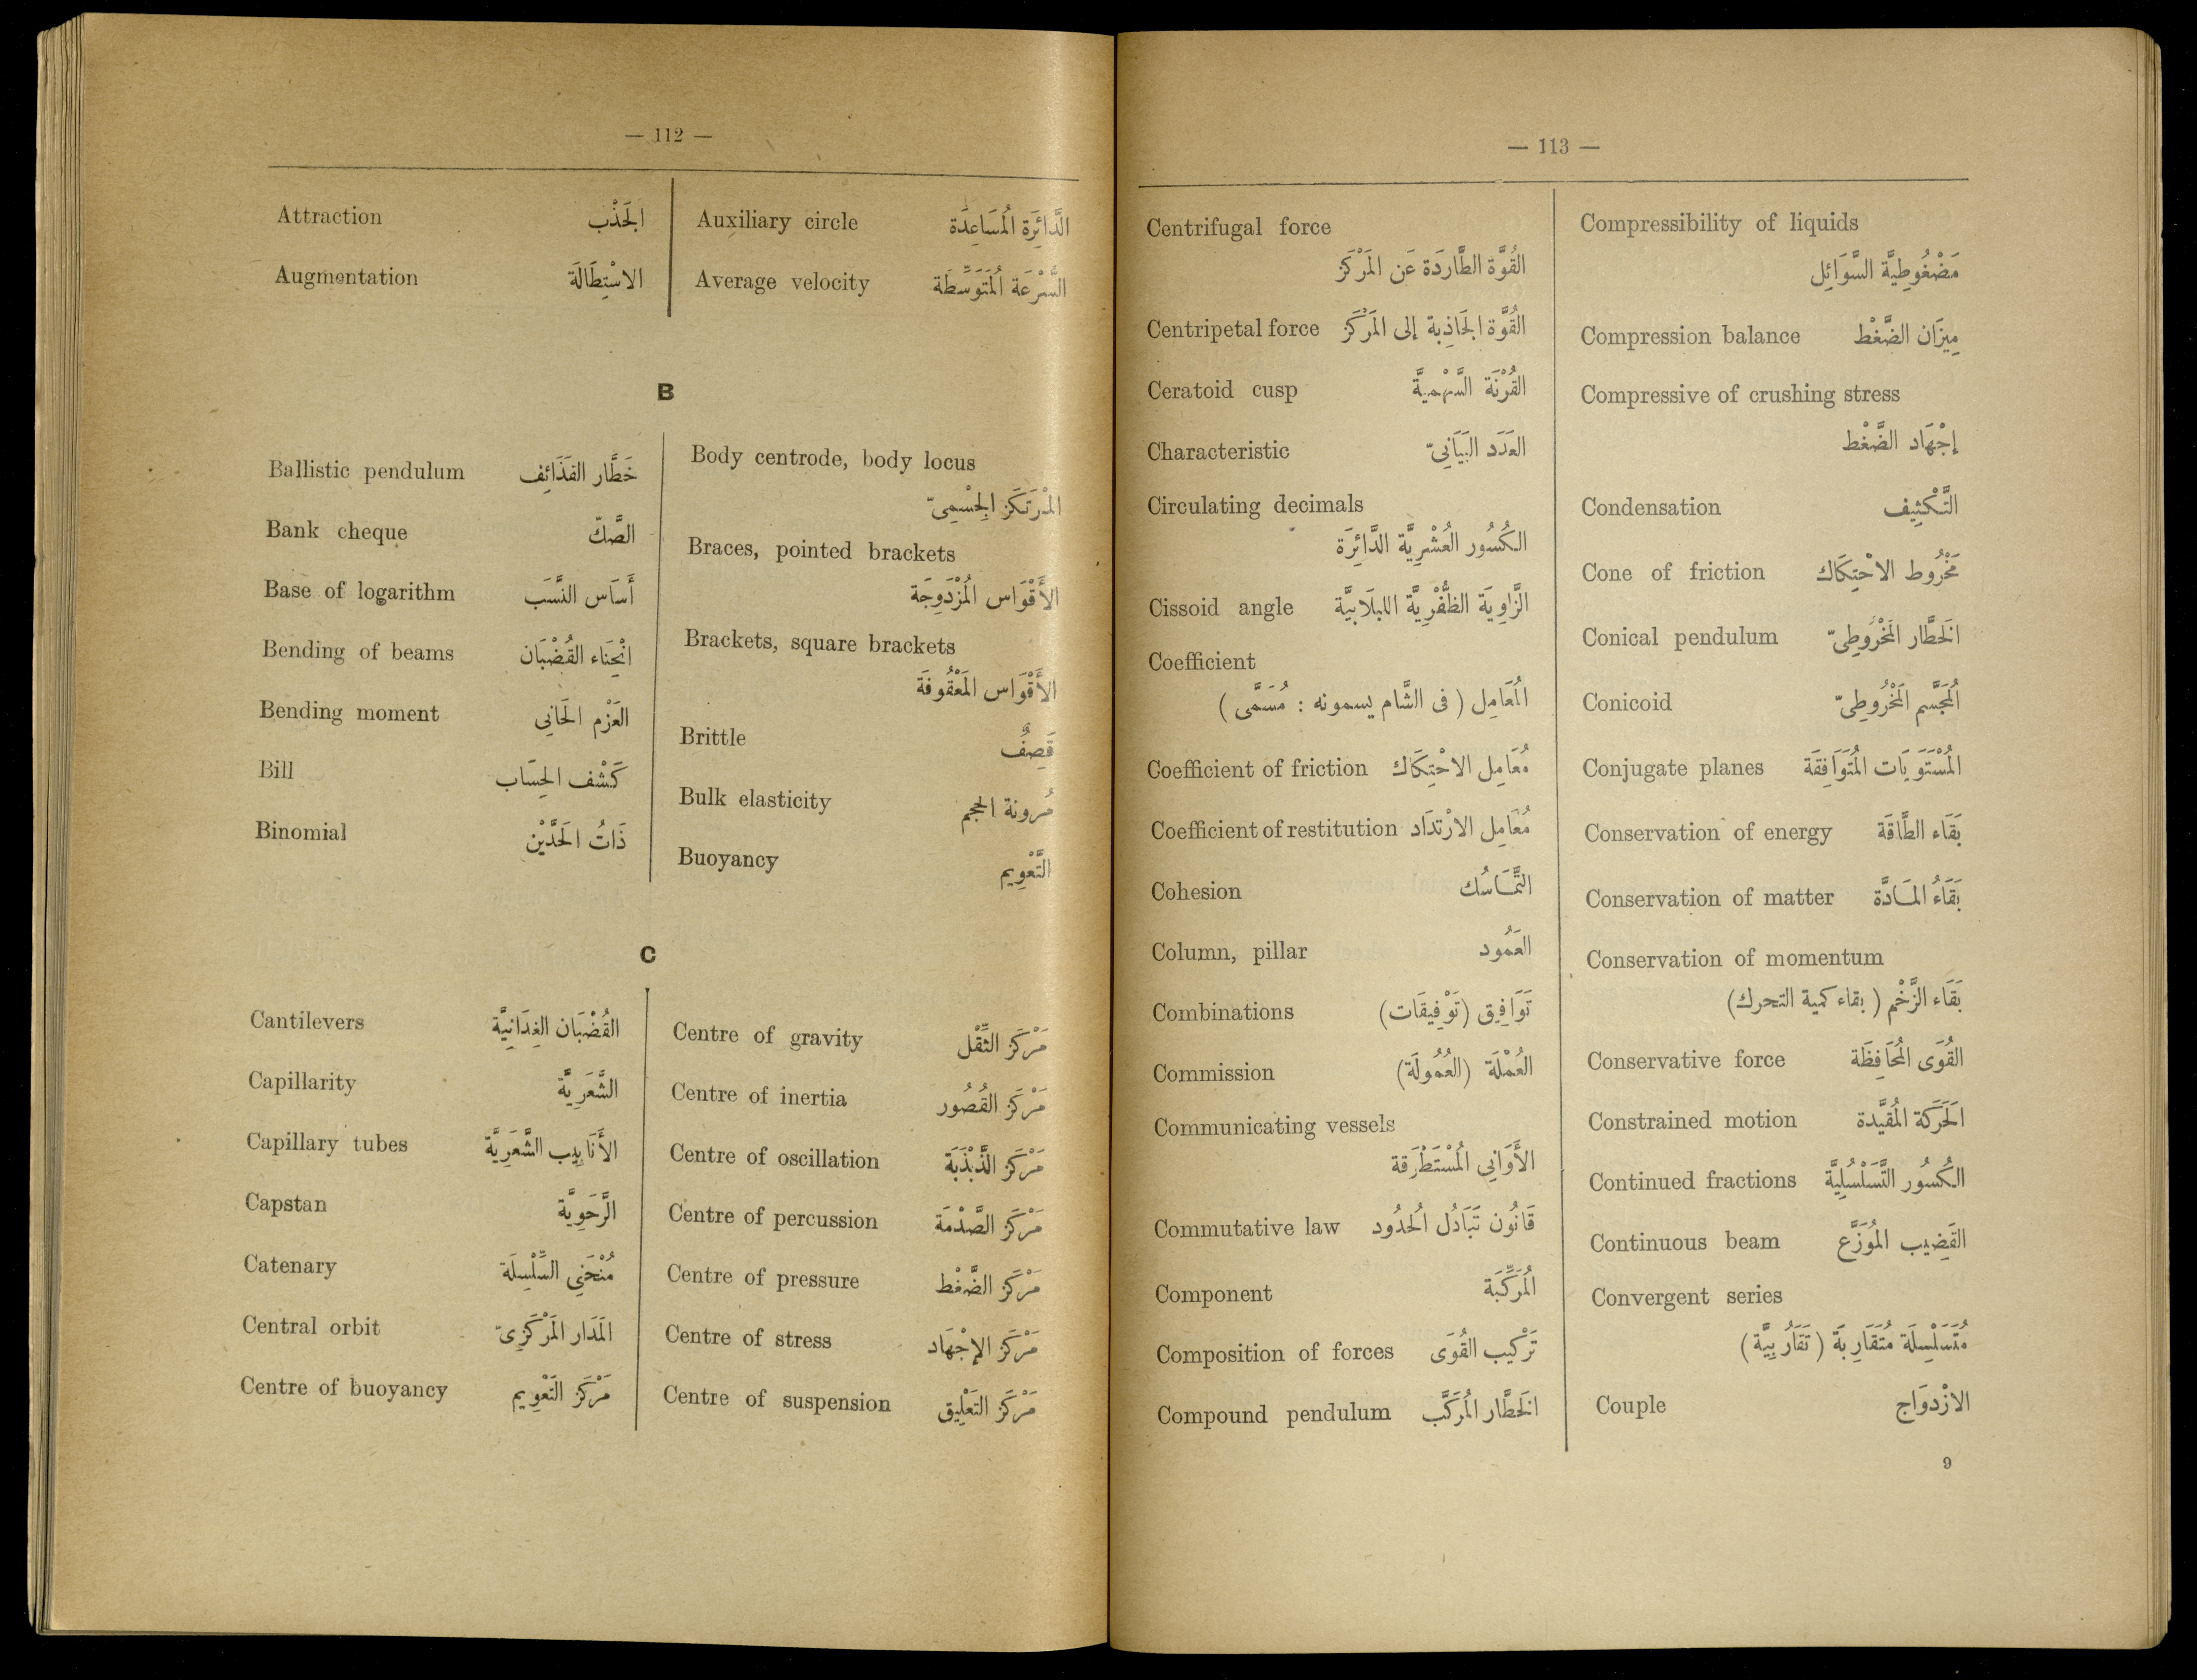 — 112 —
Attraction الجَذْب
Augmentation الاسْتِطَالَة
Auxiliary circle الدَّائِرَة المُسَاعِدَة
Average velocity السُّرْعَة المُتَوَسِّطَة
B
Ballistic pendulum خَطَّار القَذَائِف
Bank cheque الصَّكّ
Base of logarithm أَسَاس النَّسَب
Bending of beams انْحِنَاء القُضْبَان
Bending moment العَزْم الحَانِي
Bill كَشْف الحِسَاب
Binomial ذَاتُ الحَدَّيْن
Body centrode, body locus
المُرْتَكَز الجِسْمِىّ
Braces, pointed brackets
الأَقْوَاس المُزْدَوِجَة
Brackets, square brackets
الأَقْوَاس المَعْقُوفَة
Brittle قَصِفٌ
Bulk elasticity مُرونة الحجم
Buoyancy التَّعْوِيم
C
Cantilevers القُضْبَان الفِدَانِيَّة
Capillarity الشَّعَرِيَّة
Capillary tubes الأَنَابِيب الشَّعَرِيَّة
Capstan الرَّحَوِيَّة
Catenary مُنْحَنِى السِّلْسِلَة
Central orbit المَدَار المَرْكَزِىّ
Centre of buoyancy مَرْكَز التَعْوِيم
Centre of gravity مَرْكَز الثِّقْل
Centre of inertia مَرْكَز القُصُور
Centre of oscillation مَرْكَز الذَّبْذَبَة
Centre of percussion مَرْكَز الصَّدْمَة
Centre of pressure مَرْكَز الضَّغْط
Centre of stress مَرْكَز الإِجْهَاد
Centre of suspension مَرْكَز التَعْلِيق
— 113 —
Centrifugal force
القُوَّة الطَّارِدَة عَن المَرْكَز
Centripetal force القُوَّة الجَاذِبة إلى المَرْكَز
Ceratoid cusp القُرْنَة السَّهْمِيَّة
Characteristic العَدَد البَيَانِىّ
Circulating decimals
الكُسُور العُشْرِيَّة الدَّائِرَة
Cissoid angle الزَّاوِيَة الظُّفْرِيَّة اللبلَابِيَّة
Coefficient
المُعَامِل ( فى الشَّام يسمونه : مُسَمَّى )
Coefficient of friction مُعَامِل الاحْتِكَاك
Coefficient of restitution مُعَامِل الارْتدَاد
Cohesion التَّمَاسُك
Column, pillar العَمُود
Combinations تَوَافِيق (تَوْفِيقَات)
Commission العُمْلَة (العُمُولَة)
Communicating vessels
الأَوَانِي المُسْتَطْرَقة
Commutative law قَانُون تَبَادُل الحُدُود
Component المُرَكِّبَة
Composition of forces تَرْكيب القُوَى
Compound pendulum الخَطَّار المُرَكَّب
Compressibility of liquids
مَضْغُوطِيَّة السَّوَائِل
Compression balance مِيزَان الضَّغْط
Compressive of crushing stress
إجْهَاد الضَّغْط
Condensation التَّكْثِيف
Cone of friction مَخْرُوط الاحْتِكَاك
Conical pendulum الخَطَّار المَخْرُوطِىّ
Conicoid المُجَسَّم المَخْرُوطِىّ
Conjugate planes المُسْتَوَيَات المُتَوَافِقَة
Conservation of energy بَقَاء الطَّاقَة
Conservation of matter بَقَاءُ المَادَّة
Conservation of momentum
بَقَاء الزَّخْم ( بقاء كمية التحرك)
Conservative force القُوَى المُحَافِظَة
Constrained motion الحَرَكَة المُقيَّدة
Continued fractions الكُسُور التَّسَلْسُلِيَّة
Continuous beam القَضِيب المُوَزَّع
Convergent series
مُتَسَلْسِلَة مُتَقَارِبَة ( تَقَارُبِيَّة )
Couple الازْدوَاج
9